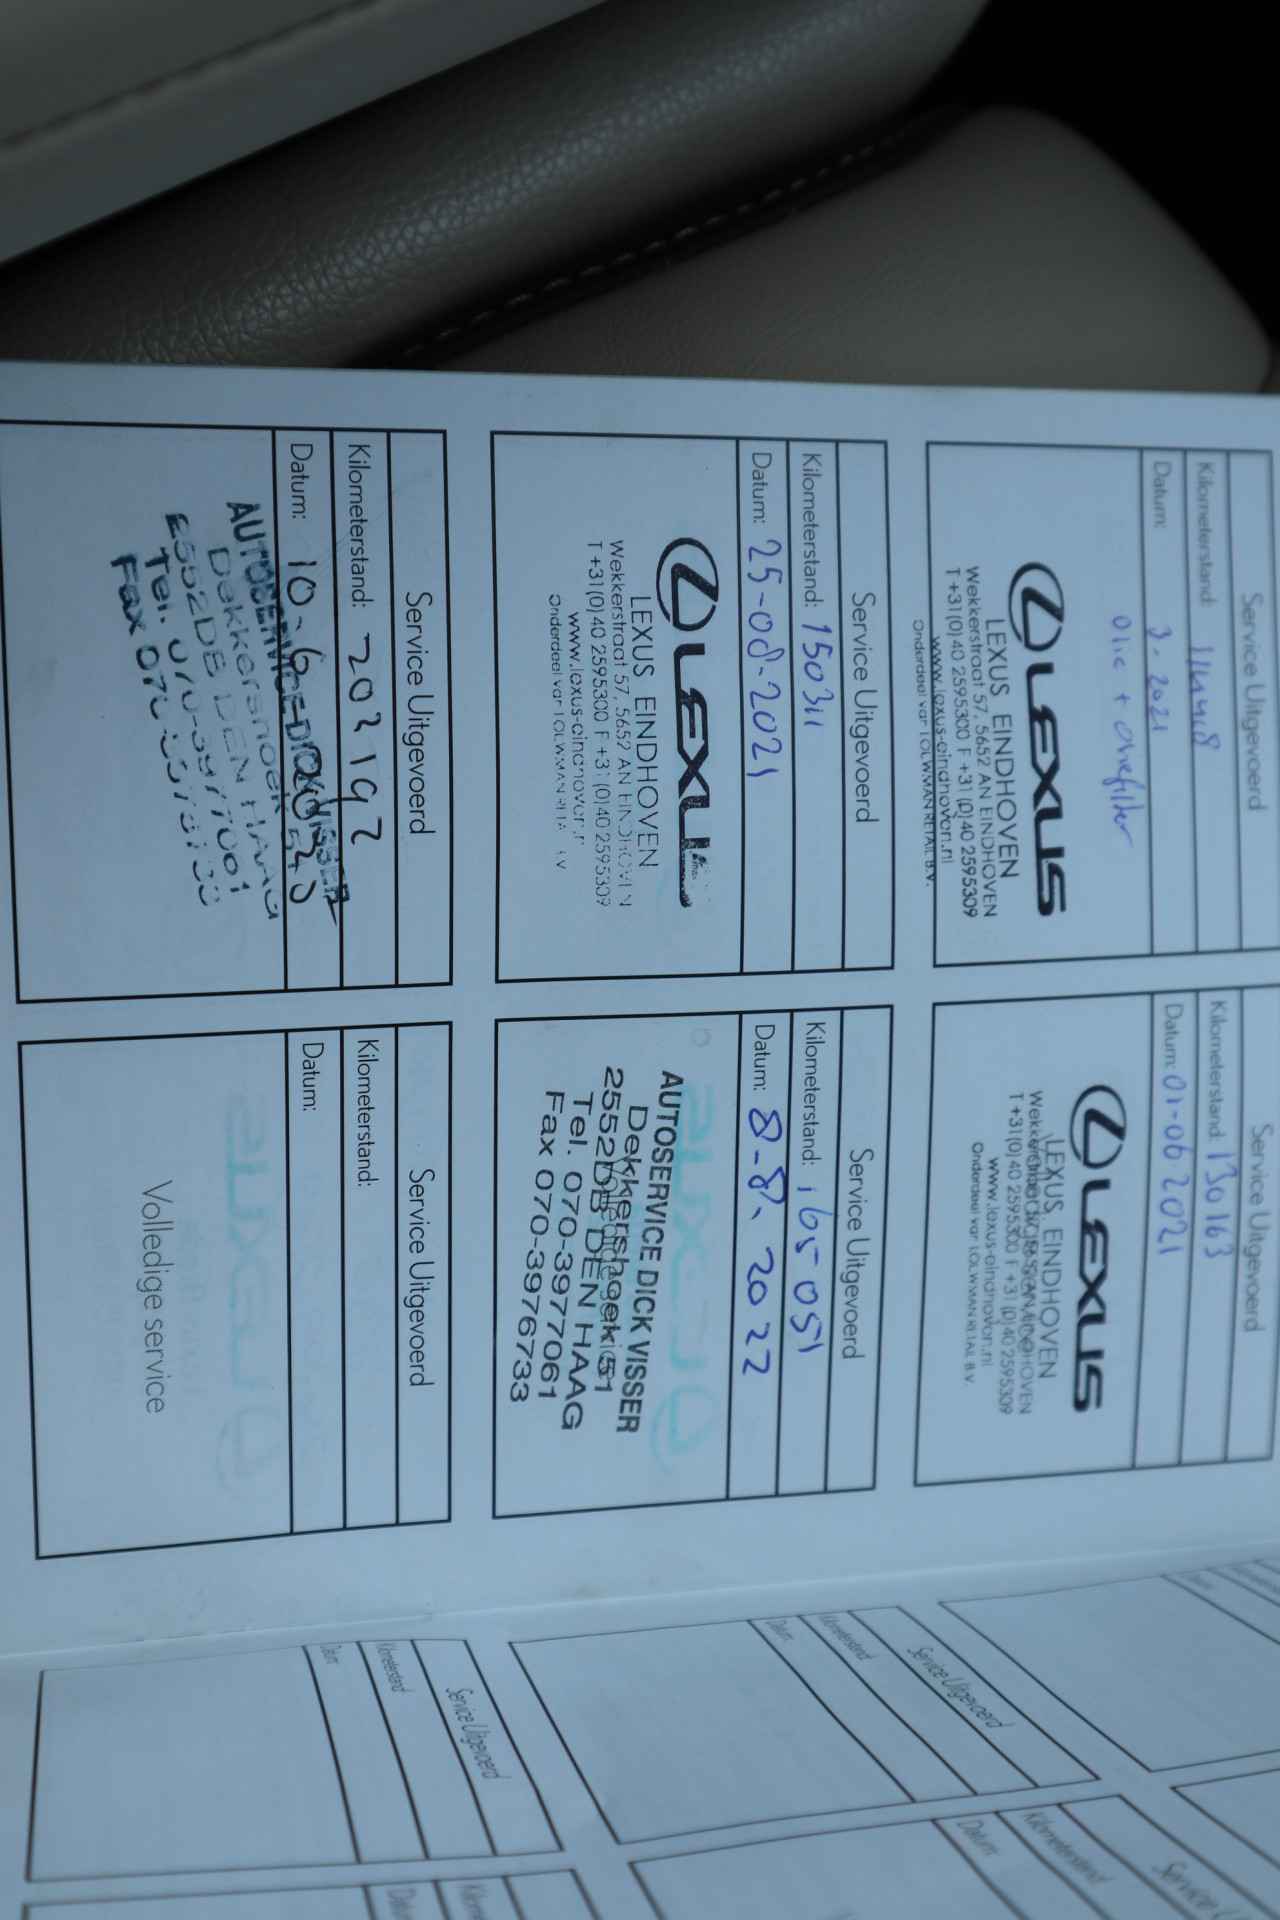 Service Uitgevoerd
Kilometerstand:
Datum: 3-2021
olie + oliefilter
LEXUS
LEXUS EINDHOVEN
Wekkerstraat 57, 5652 AN EINDHOVEN
T +31(0)40 2595300 F +31(0)40 2595309
www.lexus-eindhoven.nl
Onderdeel van LOUWMAN RETAIL B.V.
Service Uitgevoerd
Kilometerstand: 130163
Datum: 01-06 2021
LEXUS
LEXUS EINDHOVEN
T +31(0)40 2595300 F +31(0)40 2595309
www.lexus-eindhoven.nl
Onderdeel van LOUWMAN RETAIL B.V.
Service Uitgevoerd
Kilometerstand: 150311
Datum: 25-08-2021
LEXUS
LEXUS EINDHOVEN
Wekkerstraat 57, 5652 AN EINDHOVEN
T +31(0)40 2595300 F +31(0)40 2595309
www.lexus-eindhoven.n
Onderdeel van LOUWMAN RETA
Service Uitgevoerd
Kilometerstand: 165051
Datum: 8-8-2022
AUTOSERVICE DICK VISSER
Dekkershoek 51
2552DB DEN HAAG
Tel. 070-3977061
Fax 070-3976733
Service Uitgevoerd
Kilometerstand: 202192
Datum: 10-6-2023
AUTOSERVICE DICK VISSER
Dekkershoek 51
2552DB DEN HAAG
Tel. 070-3977061
Fax 070-3976733
Service Uitgevoerd
Kilometerstand:
Datum:
Volledige service
Service Uitgevoerd
Kilometerstand
Datum
Service Uitgevoerd
Kilometerstand
Datum
Kilometerstand
Datum